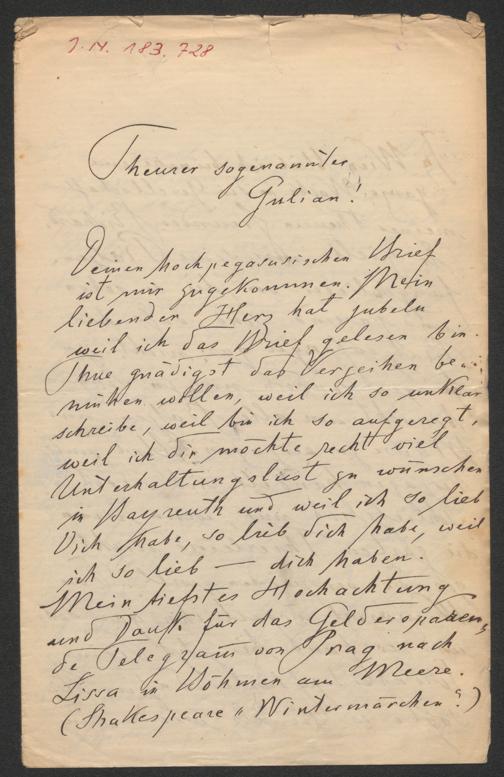 J. N. 183.728
Theurer sogenannter
Gulian!
Deinen hochpegasusischen Brief
ist mir zugekommen. Mein
liebender Herz hat jubeln
weil ich das Brief gelesen bin.
Thue gnädigst das Vergeihen be-
mühen wollen, weil ich so unklar
schreibe, weil bin ich so aufgeregt,
weil ich dir möchte recht viel
Unterhaltungslust zu wünschen
in Bayreuth und weil ich so lieb
Dich habe, so lieb dich habe, weil
ich so lieb — dich haben.
Mein tiefstes Hochachtung
und Dank für das Gelderoparen-
de Telegram von Prag nach
Lissa in Böhmen am Meere.
(Shakespeare „Wintermärchen“.)